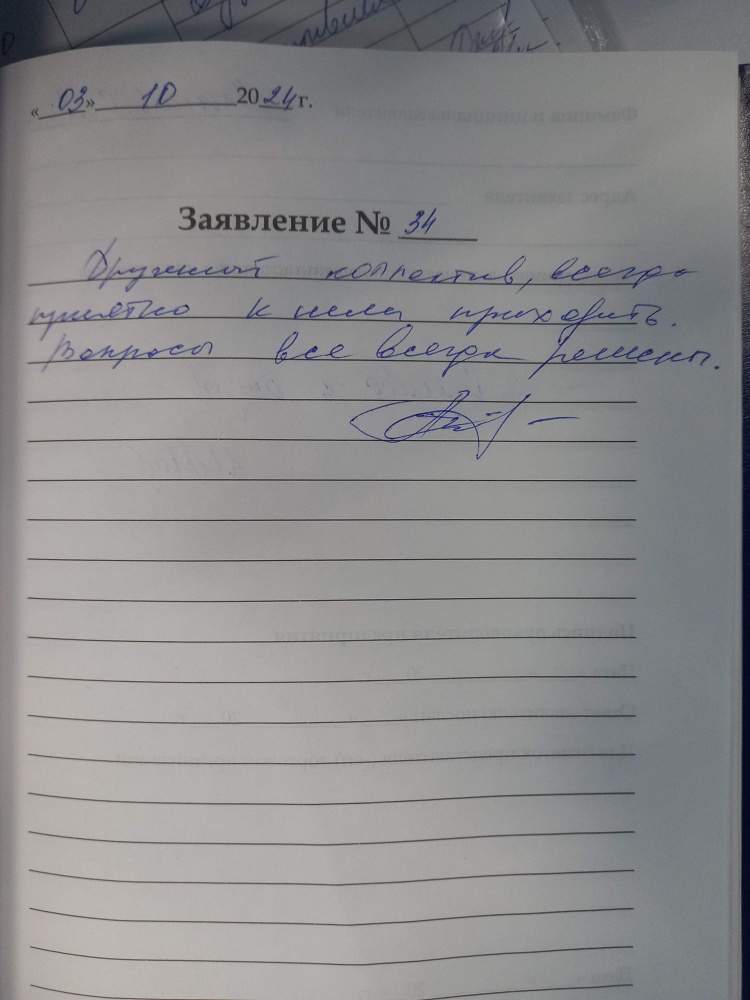 «03» 10 2024 г.
Заявление № 34
Дружный коллектив, всегда
приятно к ним приходить.
Вопросы все всегда решены.